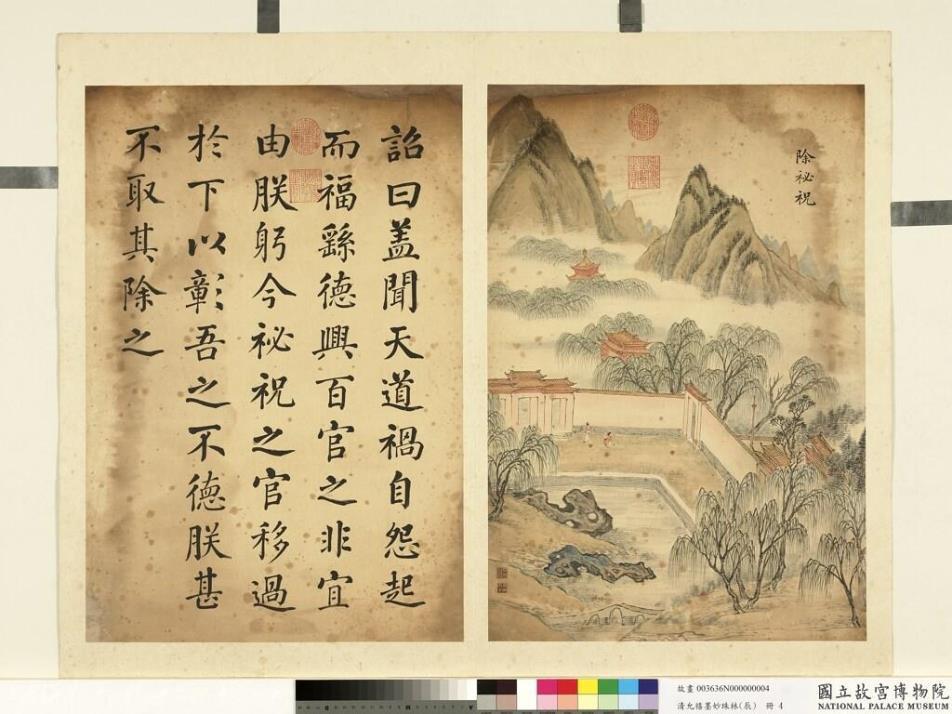 除祕祝
詔曰盖聞天道禍自怨起
而福繇德興百官之非宜
由朕躬今祕祝之官移過
於下以彰吾之不德朕甚
不取其除之
故畫 003636N000000004
清允禧墨妙珠林(辰) 冊 4
國立故宮博物院
NATIONAL PALACE MUSEUM